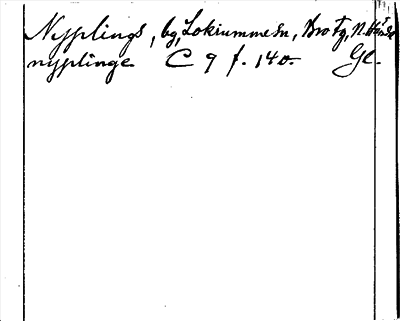 Nypplings, by, Lokrumme sn, Bro tg, N. Här.
nypplinge C 9 f. 140. Gl.